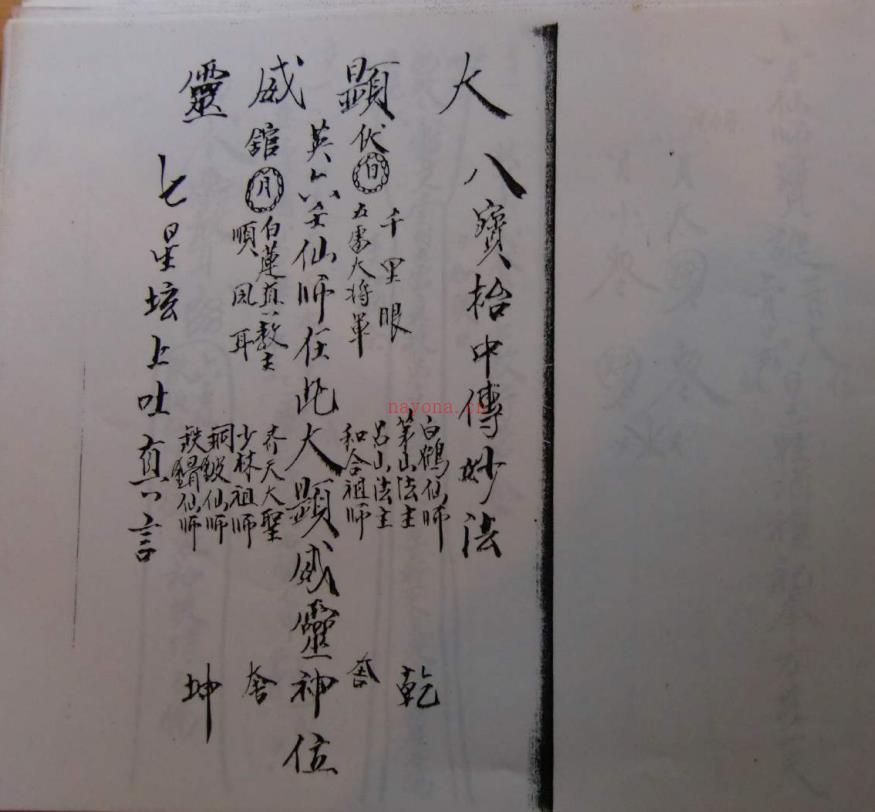 大顯威靈
八寶抬中傳妙法
千里眼
伏日五雷大將軍
英六壬仙師在此大顯威靈神位
館月白蓮真教主
順風耳
白鶴仙師
茅山法主
呂山法主
和合祖師
齊天大聖
少林祖師
仙師
仙師
乾
坤
七星坛上吐真言
nayona.cn